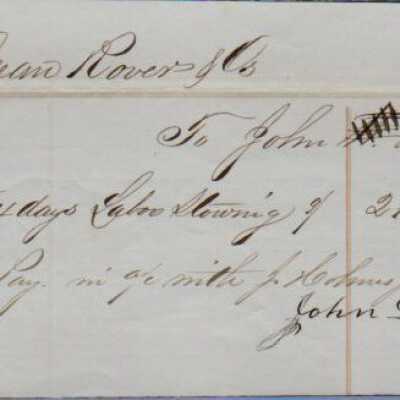 Ocean Rover & Co
To John
days Labor Stowing @ 2
Pay. in a/c with J. Holmes
John